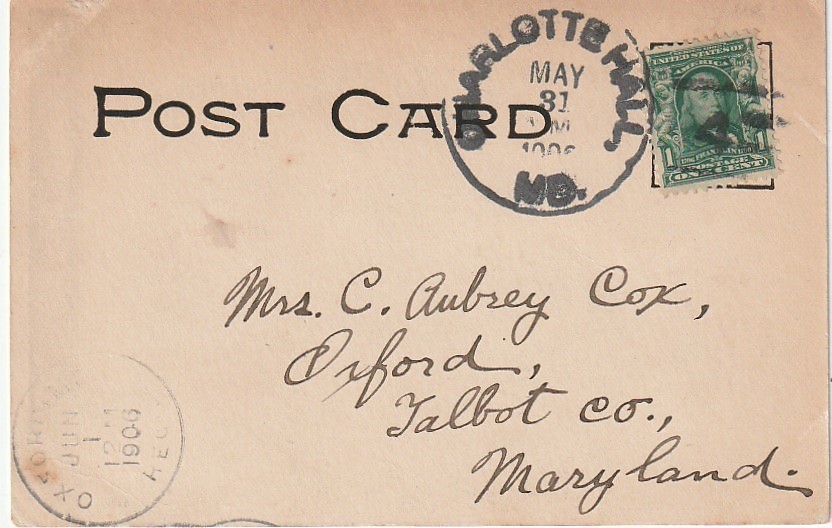 POST CARD
CHARLOTTE HALL,
MAY
31
M
1906
MD.
UNITED STATES OF
AMERICA
1 FRANKLIN 1
POSTAGE
ONE CENT
Mrs. C. Aubrey Cox,
Oxford,
Talbot co.,
Maryland.
OXFORD
JUN
1
12 M
1906
REC'D